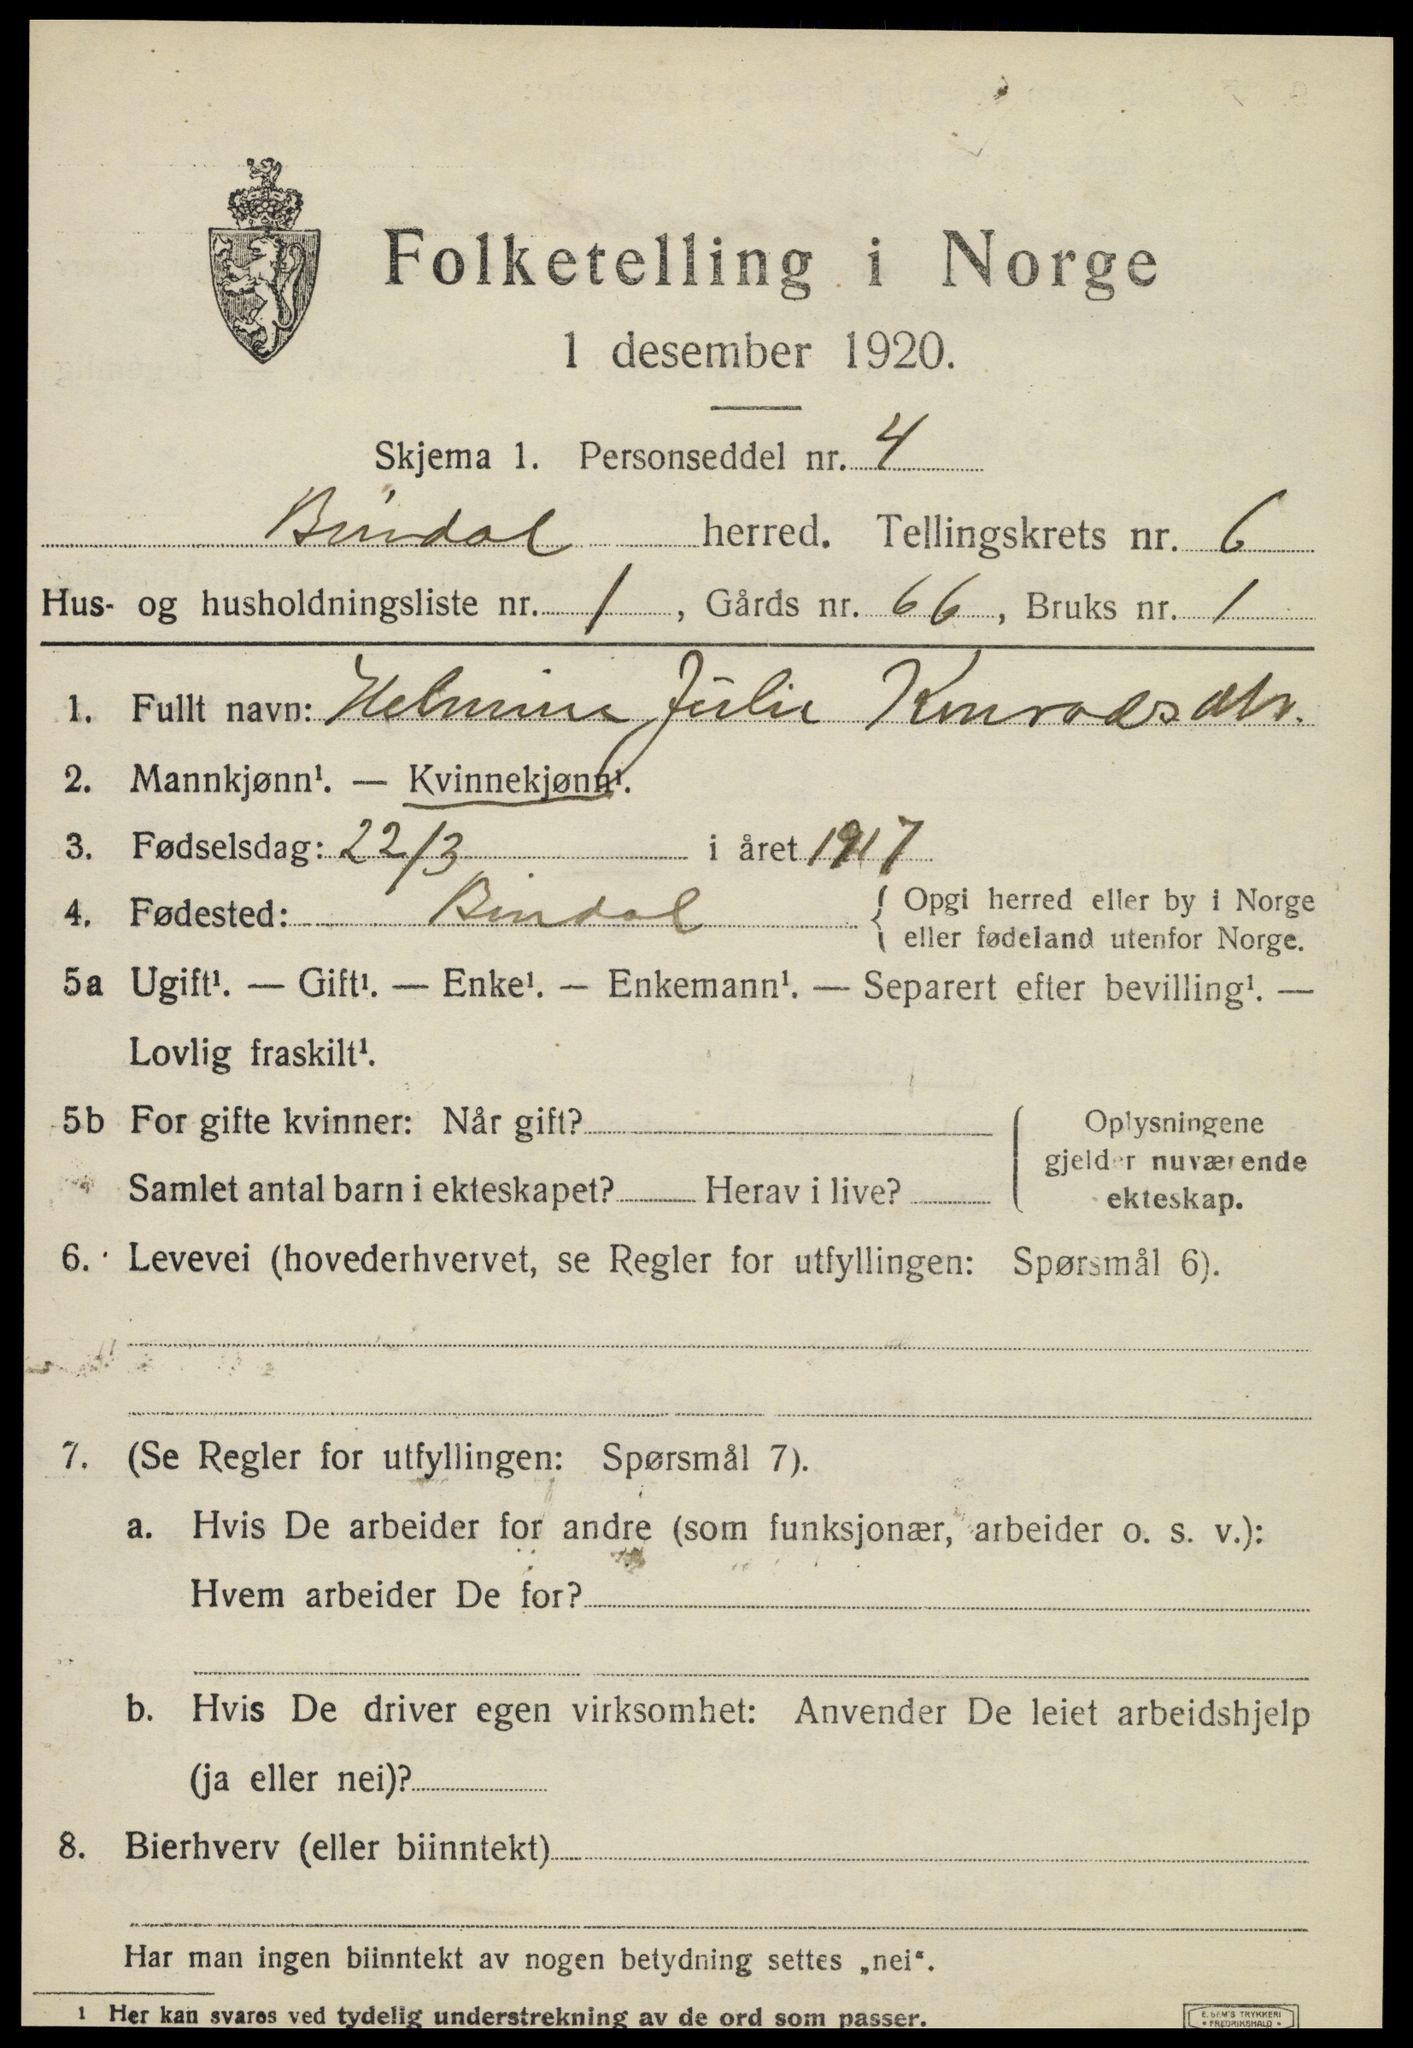 Folketelling i Norge
1 desember 1920.
Skjema 1. Personseddel nr. 4
Bindal herred. Tellingskrets nr. 6
Hus- og husholdningsliste nr. 1, Gårds nr. 66, Bruks nr. 1
1. Fullt navn: Helmine Julie Konradsdtr.
2. Mannkjønn¹. — Kvinnekjønn¹.
3. Fødselsdag: 22/3 i året 1917
4. Fødested: Bindal { Opgi herred eller by i Norge
eller fødeland utenfor Norge.
5a Ugift¹. — Gift¹. — Enke¹. — Enkemann¹. — Separert efter bevilling¹. —
Lovlig fraskilt¹.
5b For gifte kvinner: Når gift? Oplysningene
gjelder nuværende
Samlet antal barn i ekteskapet? Herav i live? ekteskap.
6. Levevei (hovederhvervet, se Regler for utfyllingen: Spørsmål 6).
7. (Se Regler for utfyllingen: Spørsmål 7).
a. Hvis De arbeider for andre (som funksjonær, arbeider o. s. v.):
Hvem arbeider De for?
b. Hvis De driver egen virksomhet: Anvender De leiet arbeidshjelp
(ja eller nei)?
8. Bierhverv (eller biinntekt)
Har man ingen biinntekt av nogen betydning settes „nei“.
1 Her kan svares ved tydelig understrekning av de ord som passer.
E. SEM'S TRYKKERI
• FREDRIKSHALD •